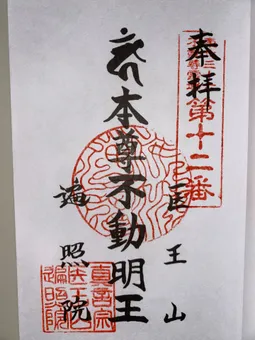 奉拝
第十二番
医王山
本尊不動明王
遍照院
真言宗
遍照院